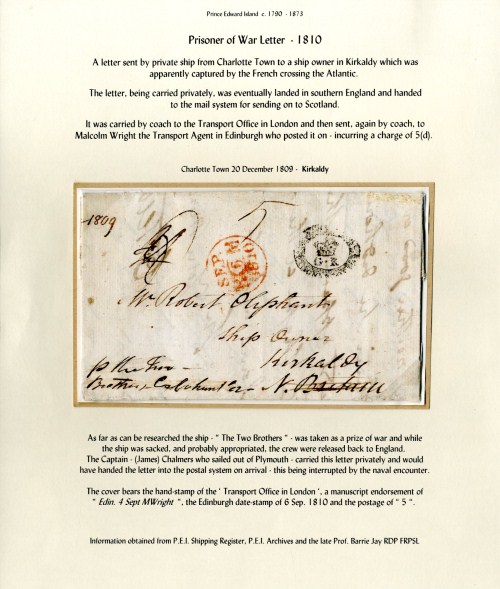 Prince Edward Island c. 1790 - 1873
Prisoner of War Letter - 1810
A letter sent by private ship from Charlotte Town to a ship owner in Kirkaldy which was
apparently captured by the French crossing the Atlantic.
The letter, being carried privately, was eventually landed in southern England and handed
to the mail system for sending on to Scotland.
It was carried by coach to the Transport Office in London and then sent, again by coach, to
Malcolm Wright the Transport Agent in Edinburgh who posted it on - incurring a charge of 5(d).
Charlotte Town 20 December 1809 - Kirkaldy
1809
5
SEP
6
1810
GR
Mr. Robert Oliphant
Ship Owner
Kirkaldy
p the Two
Brothers N. Britain
As far as can be researched the ship - " The Two Brothers " - was taken as a prize of war and while
the ship was sacked, and probably appropriated, the crew were released back to England.
The Captain - (James) Chalmers who sailed out of Plymouth - carried this letter privately and would
have handed the letter into the postal system on arrival - this being interrupted by the naval encounter.
The cover bears the hand-stamp of the ' Transport Office in London ', a manuscript endorsement of
" Edin. 4 Sept MWright ", the Edinburgh date-stamp of 6 Sep. 1810 and the postage of " 5 ".
Information obtained from P.E.I. Shipping Register, P.E.I. Archives and the late Prof. Barrie Jay RDP FRPSL